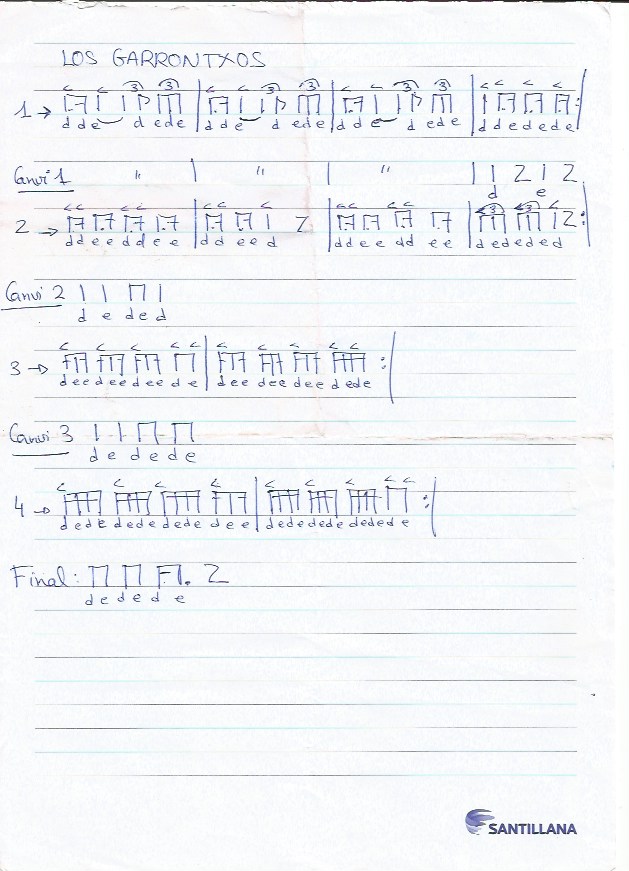 LOS GARRONTXOS
< < 3 3 < < 3 3 < < 3 3 < < < <
1 →
d d e d e d e d d e d e d e d d e d e d e d d e d e d e
Canvi 1 " | " | " | Z Z
d e
< < < < < < < < < < < 3 3 <
2 → Z Z :
d d e e d d e e d d e e d d d e e d d e e d e d e d e d
Canvi 2
d e d e d
< < < < < < < < <
3 → :
d e e d e e d e e d e d e e d e e d e e d e d e
Canvi 3
d e d e d e
< < < < < < < < <
4 → :
d e d e d e d e d e d e d e e d e d e d e d e d e d e d e
Final: Z
d e d e d e
SANTILLANA